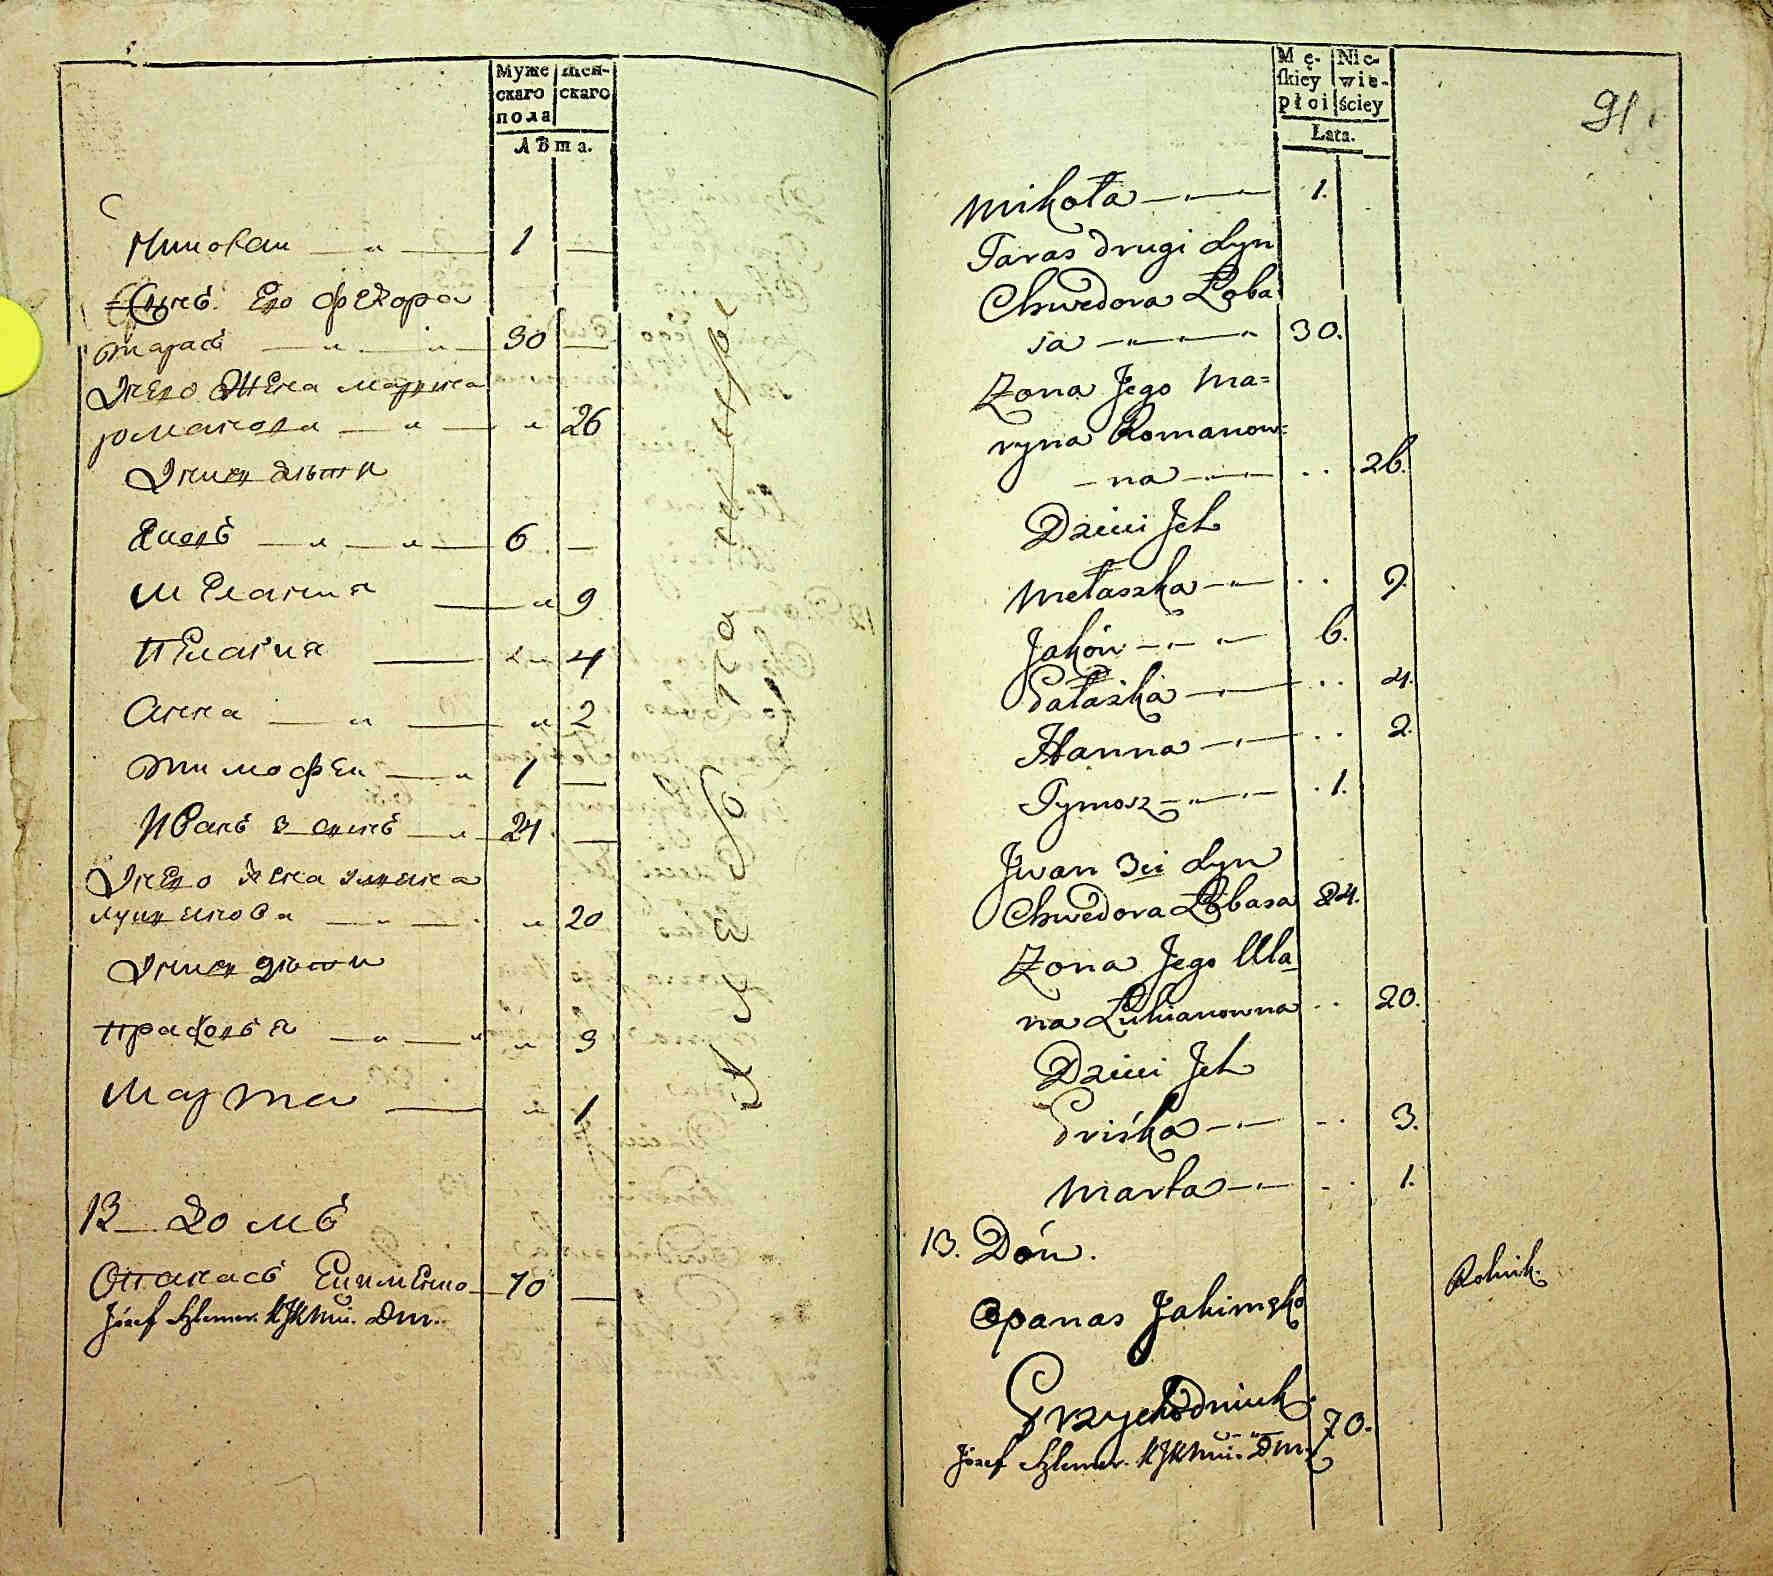 Муже ског пола
Жен- скаго
Лѣта.
Николаи 1
Сынъ Его Федора
тарасъ 30
У него Жена марина
романова 26
У нихъ дѣти
Яковъ 6
Мелания 9
Пелагия 4
Анна 2
тимофеи 1
Иванъ 3 сынъ 24
У него жена улияна
лукянова 20
У нихъ дѣти
прасковья 3
Марта 1
13 домъ
Опанасъ Екименко 70
Józef Szlemer
91
Mę- skiey płci
Nie- wie- ściey
Lata.
Mikoła 1.
Taras drugi Syn
Chwedora Łoba
sa 30.
Zona Jego Ma=
ryna Romanow=
na 26.
Dzieci Jch
Mełaszka 9.
Jaków 6.
Pałażka 4.
Hanna 2.
Tymosz 1.
Jwan 3ci Syn
Chwedora Łobasa 24.
Zona Jego Ula-
na Łukianowna 20.
Dzieci Jch
Priśka 3.
Marta 1.
13. Dom.
Opanas Jakimenko
Rolnik.
Przychodniuk 70.
Józef Szlemer